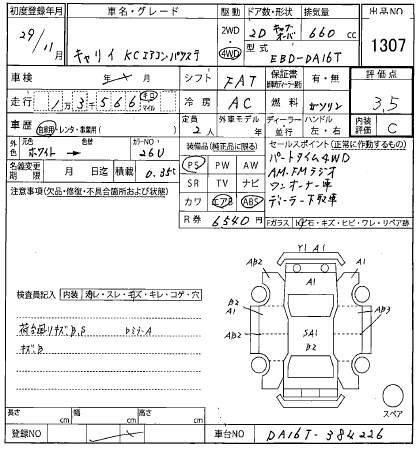 初度登録年月 車名・グレード 駆動 ドア数・形状 排気量 出品NO
29/11月 キャリイ KCエアコン・パワステ 2WD 4WD 2D キャブオーバ 660 cc 1307
型式 EBD-DA16T
車検 年 月 シフト FAT 保証書 有・無 評価点
走行 1万3千566 キロ マイル 冷房 AC 燃料 ガソリン 3.5
車歴 自家用・レンタ・事業用( ) 定員 2人 外車モデル 年 ディーラー 並行 ハンドル 左・右 内装評価 C
外色 元色 ホワイト → 色替 カラーNO 26U 装備品(純正品に限る) セールスポイント(正常に作動するもの)
名義変更期限 月 日迄 積載 0.35t PS PW AW パートタイム4WD
注意事項(欠品・修復・不具合箇所および状態) SR TV ナビ AM・FMラジオ
カワ エアB ABS ワンオーナー車
R券 6540円 ディーラー下取車
Fガラス 石・キズ・ヒビ・ワレ・リペア跡
Y1 A1
AB2 A1 A1 AB2
検査員記入 内装 コゲ・スレ・モズ・キレ・コゲ・穴 B2 A1
AB2 SA1 AB3
荷台周りキズB,S B2
キズB
スペア
長さ cm 幅 cm 高さ cm
登録NO 車台NO DA16T-384226